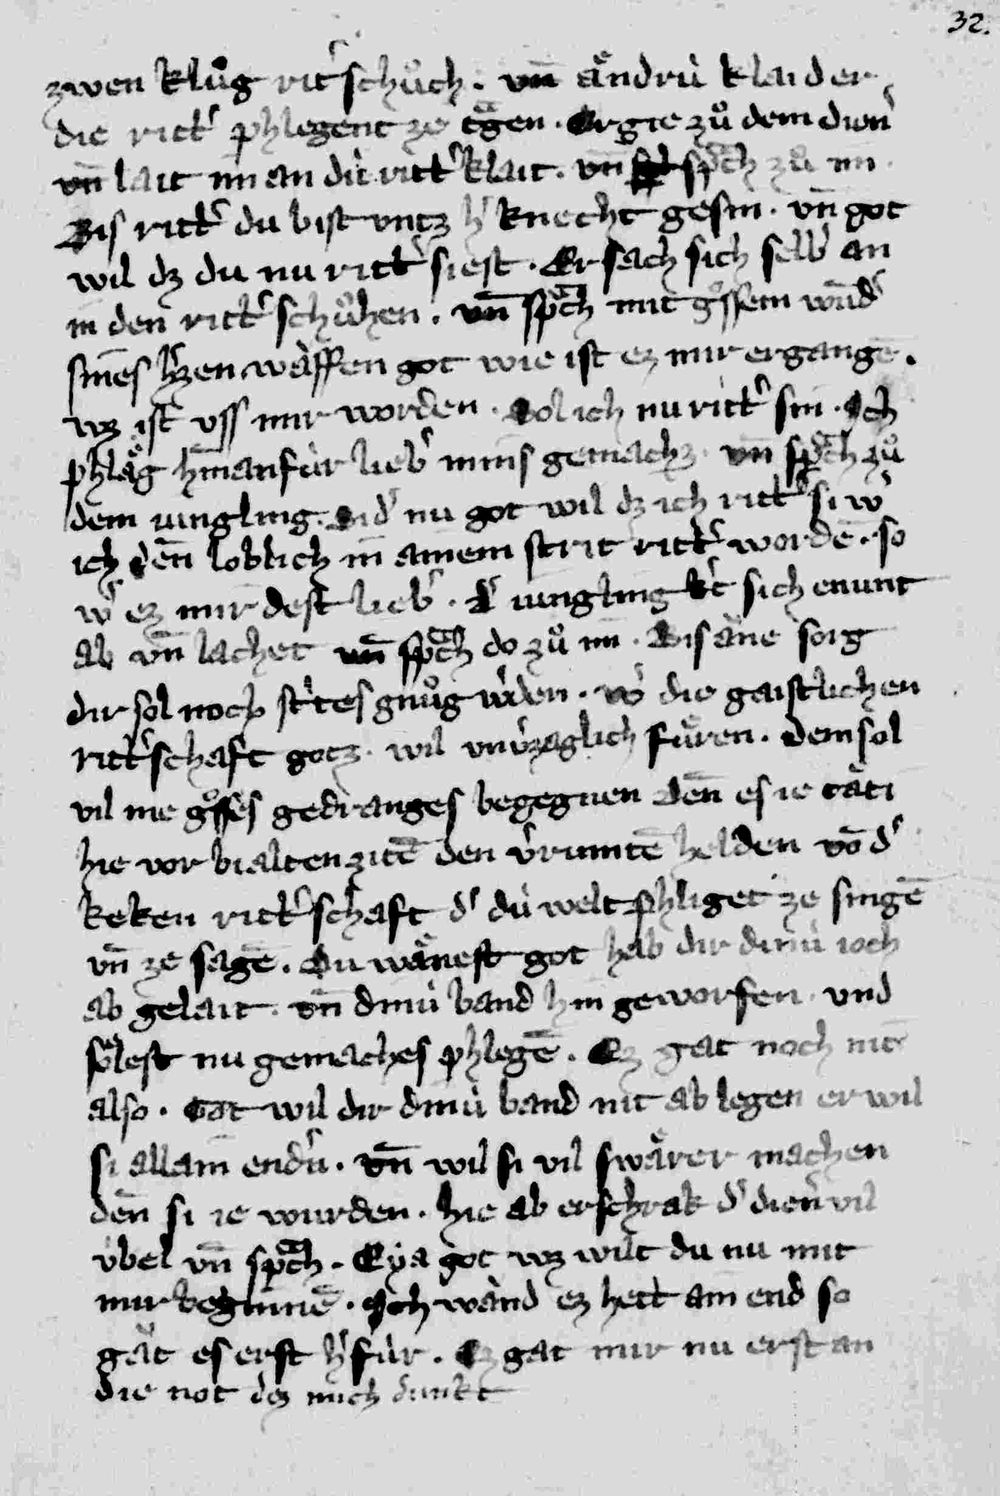 32.
zwen klůg rit̾schůch . vn̄ ändrú klaider
die ritt̾ phlegent ze tᵃgen . Er gie zů dem dien̾
vn̄ lait im an dú ritt̾klait . vn̄ spᵃch zů im .
Bis ritt̾ du bist vntz h̾ knecht gesin . vn̄ got
wil dz du nu ritt̾ siest . Er sach sich selb̾ an
in den ritt̾schůhen . vn̄ spᵃch mit gºssem wūd̾
sines h̾zen wäffen got wie ist ez mir ergangē .
wz ist vss mir worden . Sol ich nu ritt̾ sin . Ich
phläg h̾manfúr lieb̾ mins gemachz . vn̄ spᵃch zů
dem iungling . Sid̾ nu got wil dz ich ritt̾ si w̾
ich den̄ loblich in ainem strit ritt̾ wordē . so
w̾ ez mir dest lieb̾ . D̾ iungling k̾t sich enunt
ab vn̄ lachet vn̄ spᵃch do zů im . Bis äne sorg
dir sol noch st̾tes gnůg w̾den . w̾ die gaistlichen
ritt̾schaft gotz . wil vnv̾zaglich fůren . dem sol
vil me gºsses gedranges begegnen den̄ es ie täti
hie vor bi alten zitē den v̾rumtē helden vō d̾
keken ritt̾schaft d̾ dú welt phliget ze singē
vn̄ ze sagē . Du wänest got hab dir dinú ioch
ab gelait . vn̄ dinú band hin geworfen . vnd
sölest nu gemaches phlegē . Ez gat noch nit
also . Got wil dir dinú band nit ab legen er wil
si allain end̾n . vn̄ wil si vil swärer machen
den̄ si ie wurden . hie ab erschrak d̾ dien̾ vil
úbel vn̄ spᵃch . Eya got wz wilt du nu mit
mir beginnē . Ich wand ez hett ain end so
gät es erst h̾fúr . Ez gat mir nu erst an
die not dez mich dunkt